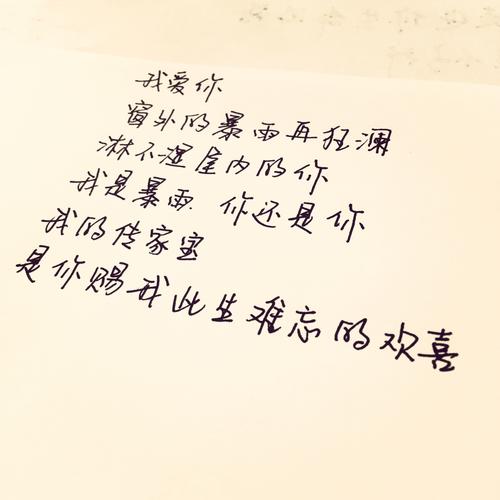 我爱你
窗外的暴雨再狂澜
淋不湿屋内的你
我是暴雨 你还是你
我的传家宝
是你赐我此生难忘的欢喜